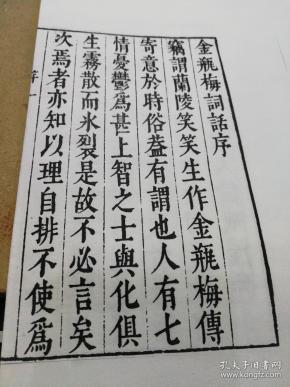 金瓶梅詞話序
竊謂蘭陵笑笑生作金瓶梅傳
寄意於時俗葢有謂也人有七
情憂鬱爲甚上智之士與化俱
生霧散而氷裂是故不必言矣
次焉者亦知以理自排不使爲
序一
孔夫子旧书网